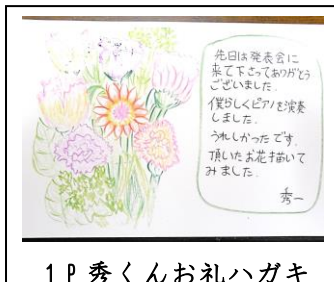 先日は発表会に
来て下さってありがとう
ございました.
僕らしくピアノを演奏
しました.
うれしかったです.
頂いたお花描いて
みました.
秀一
1P 秀くんお礼ハガキ